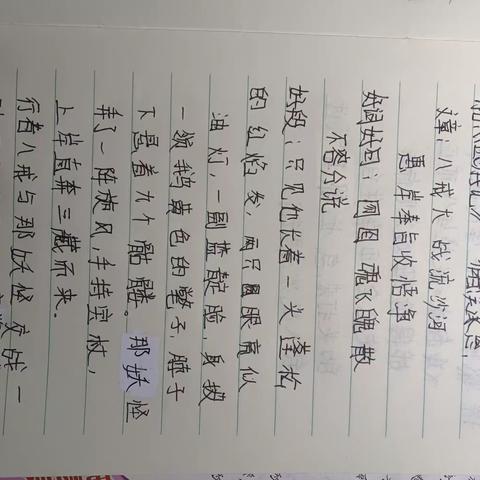 文章：八戒大战流沙河
惠岸奉旨收悟净
好词好句：囫囵 魂飞魄散
不容分说
好段：只见他长着一头蓬松
的红焰发，两只眼亮似
油灯，一副蓝靛脸，身披
一领鹅黄色的氅子，脖子
下悬着九个骷髅。那妖怪
弄了一阵旋风，手持宝杖，
上岸直奔三藏而来。
行者八戒与那妖怪交战一